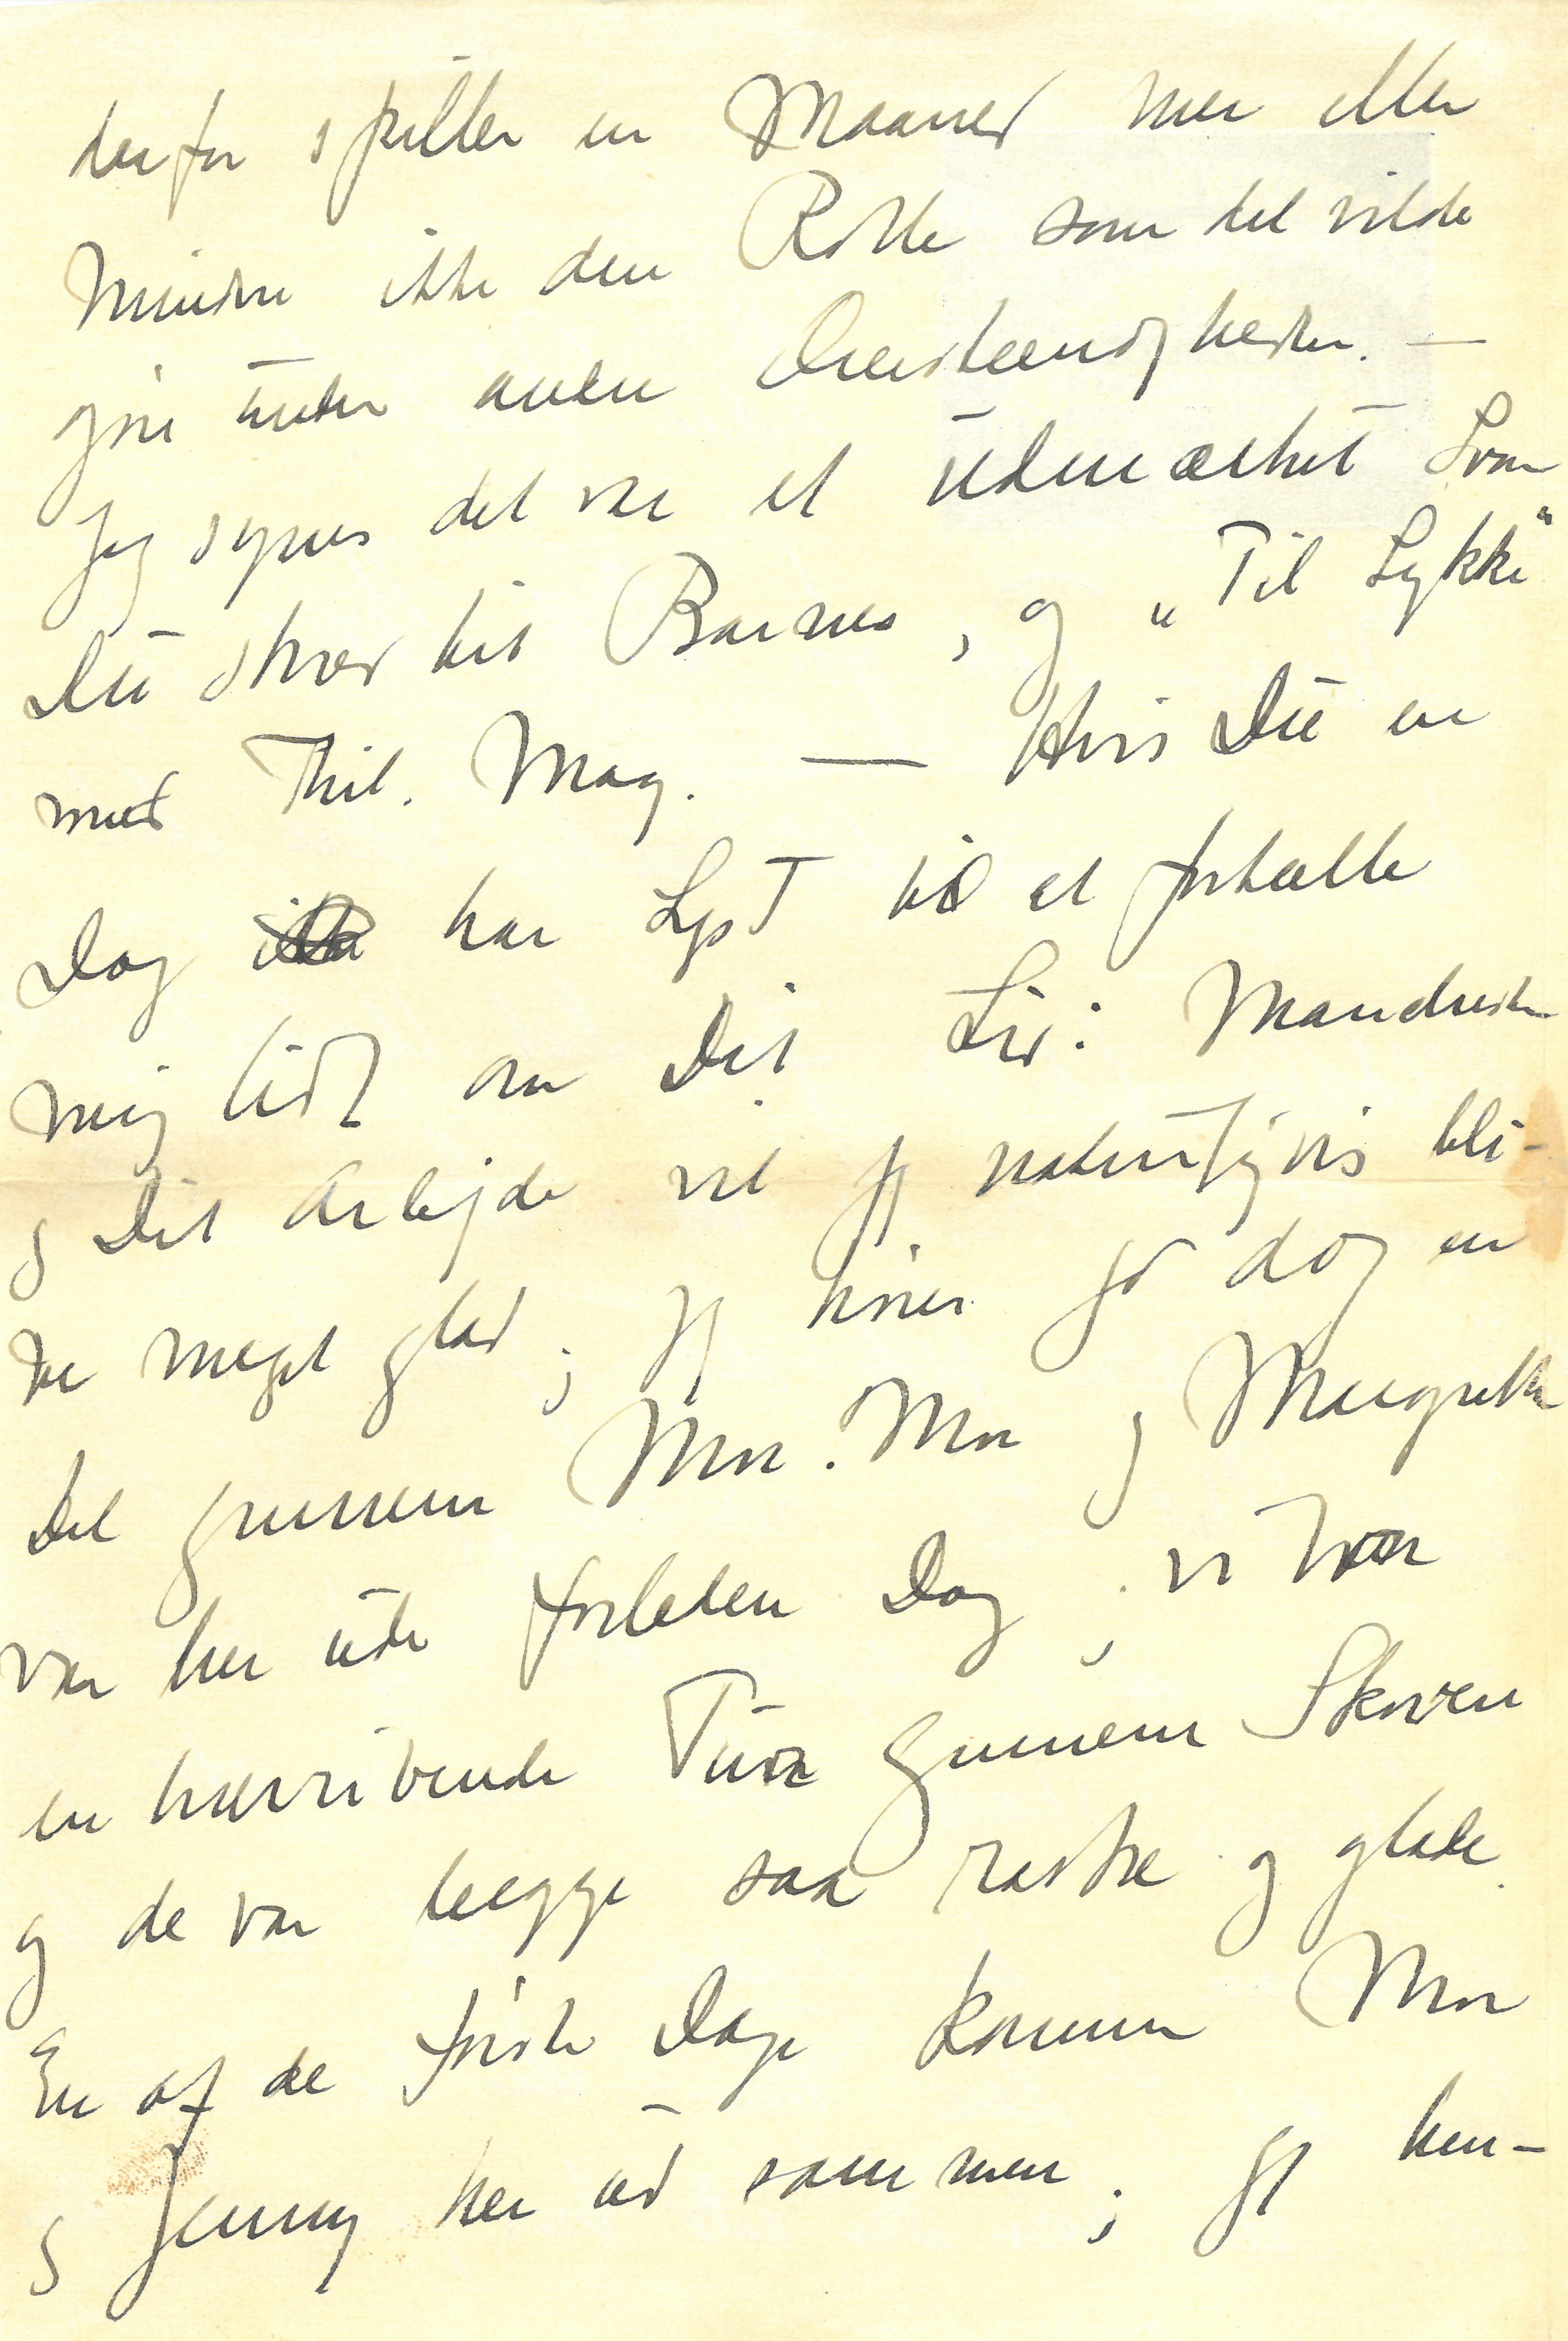 derfor spiller en Maaned mer eller
mindre ikke den Rolle som det vilde
gøre under andre Omstændigheder. —
Jeg synes det var et udmærket Svar
Du skrev til Barnes, og „Til Lykke"
med Thil. Mag. — Hvis Du en
Dag har Lyst til at fortælle
mig lidt om Dit Liv i Manchester
og Dit Arbejde vil jeg naturligvis bli-
ve meget glad; jeg hører jo dog en
Del gennem Mor. Mor og Margrethe
var her ude forleden Dag; vi var
en henrivende Tur gennem Skoven
og de var begge saa raske og glade.
En af de første Dage kommer Mor
og Jenny her ud sammen; jeg hen-